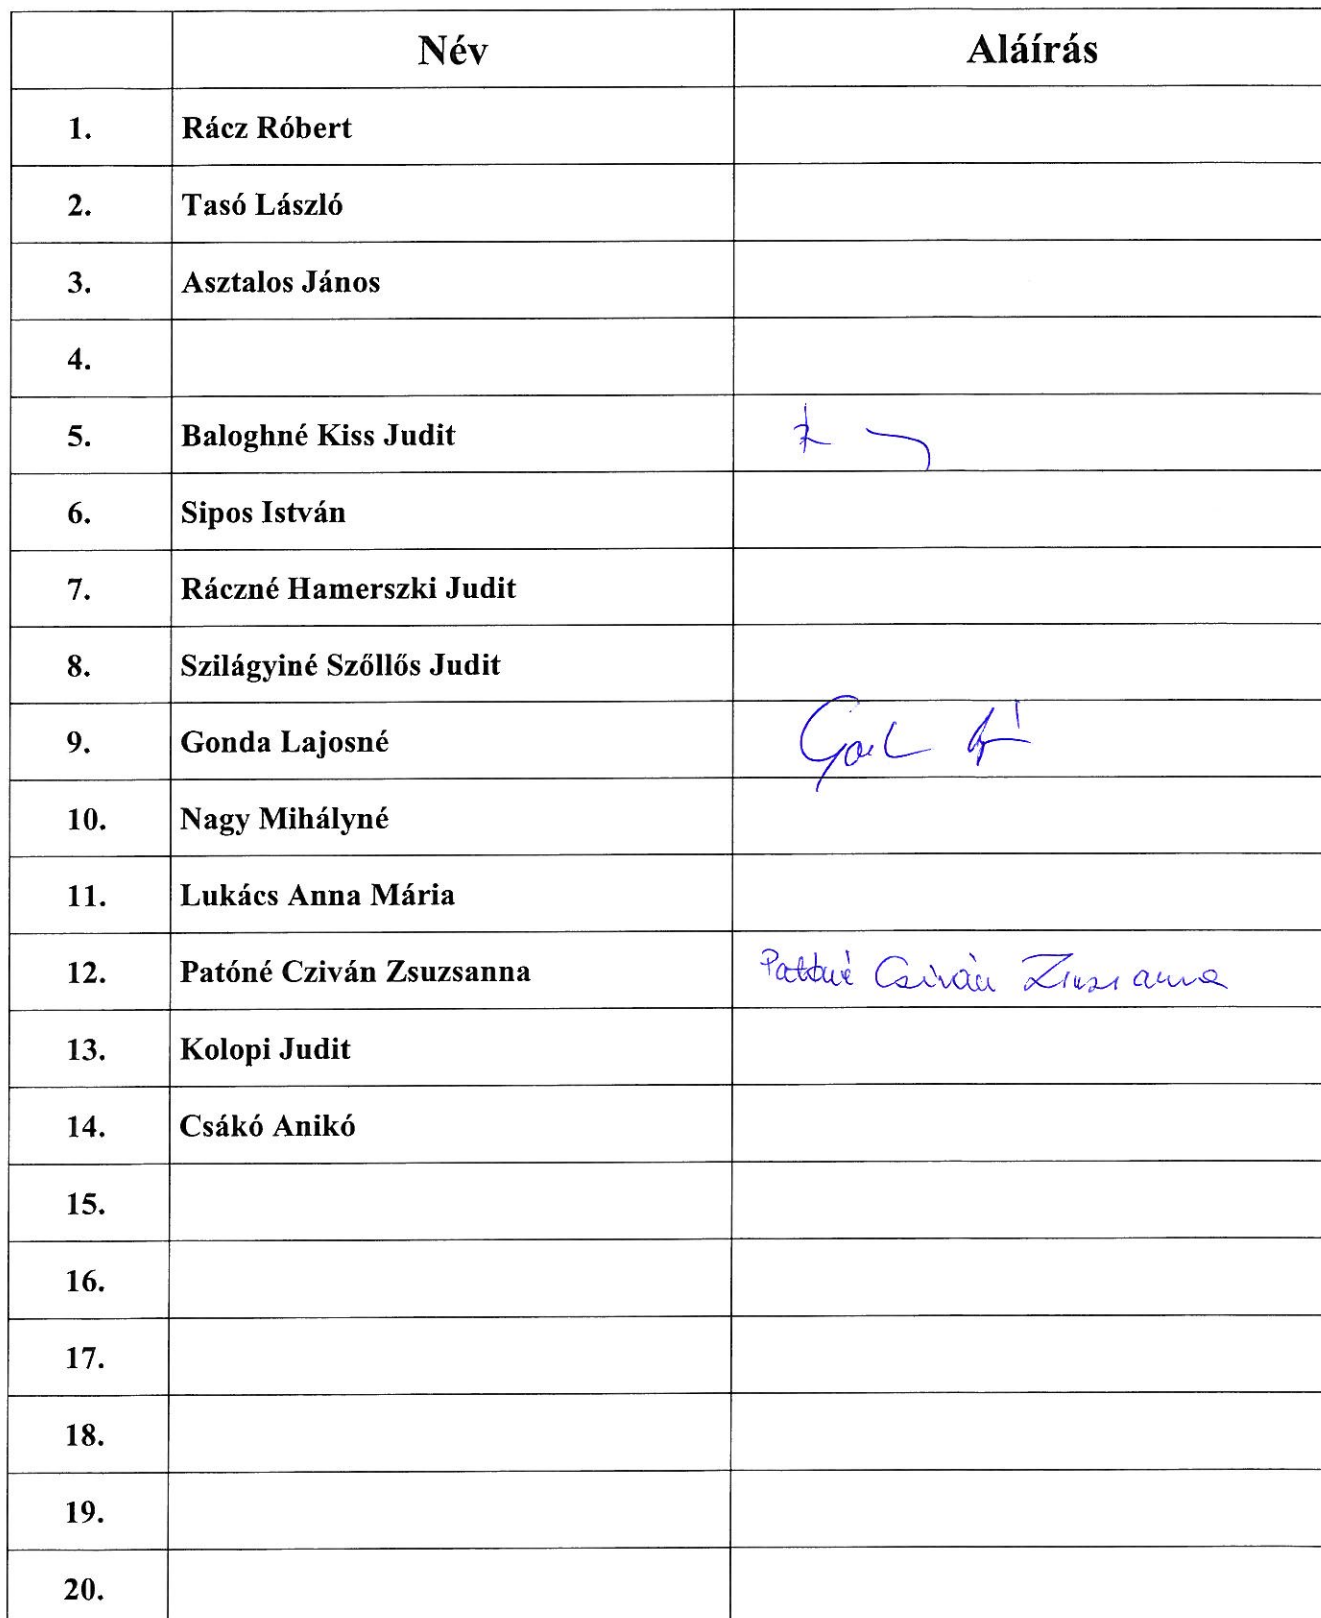 Név Aláírás
1. Rácz Róbert
2. Tasó László
3. Asztalos János
4.
5. Baloghné Kiss Judit
6. Sipos István
7. Ráczné Hamerszki Judit
8. Szilágyiné Szőllős Judit
9. Gonda Lajosné
10. Nagy Mihályné
11. Lukács Anna Mária
12. Patóné Cziván Zsuzsanna Patóné Cziván Zsuzsanna
13. Kolopi Judit
14. Csákó Anikó
15.
16.
17.
18.
19.
20.